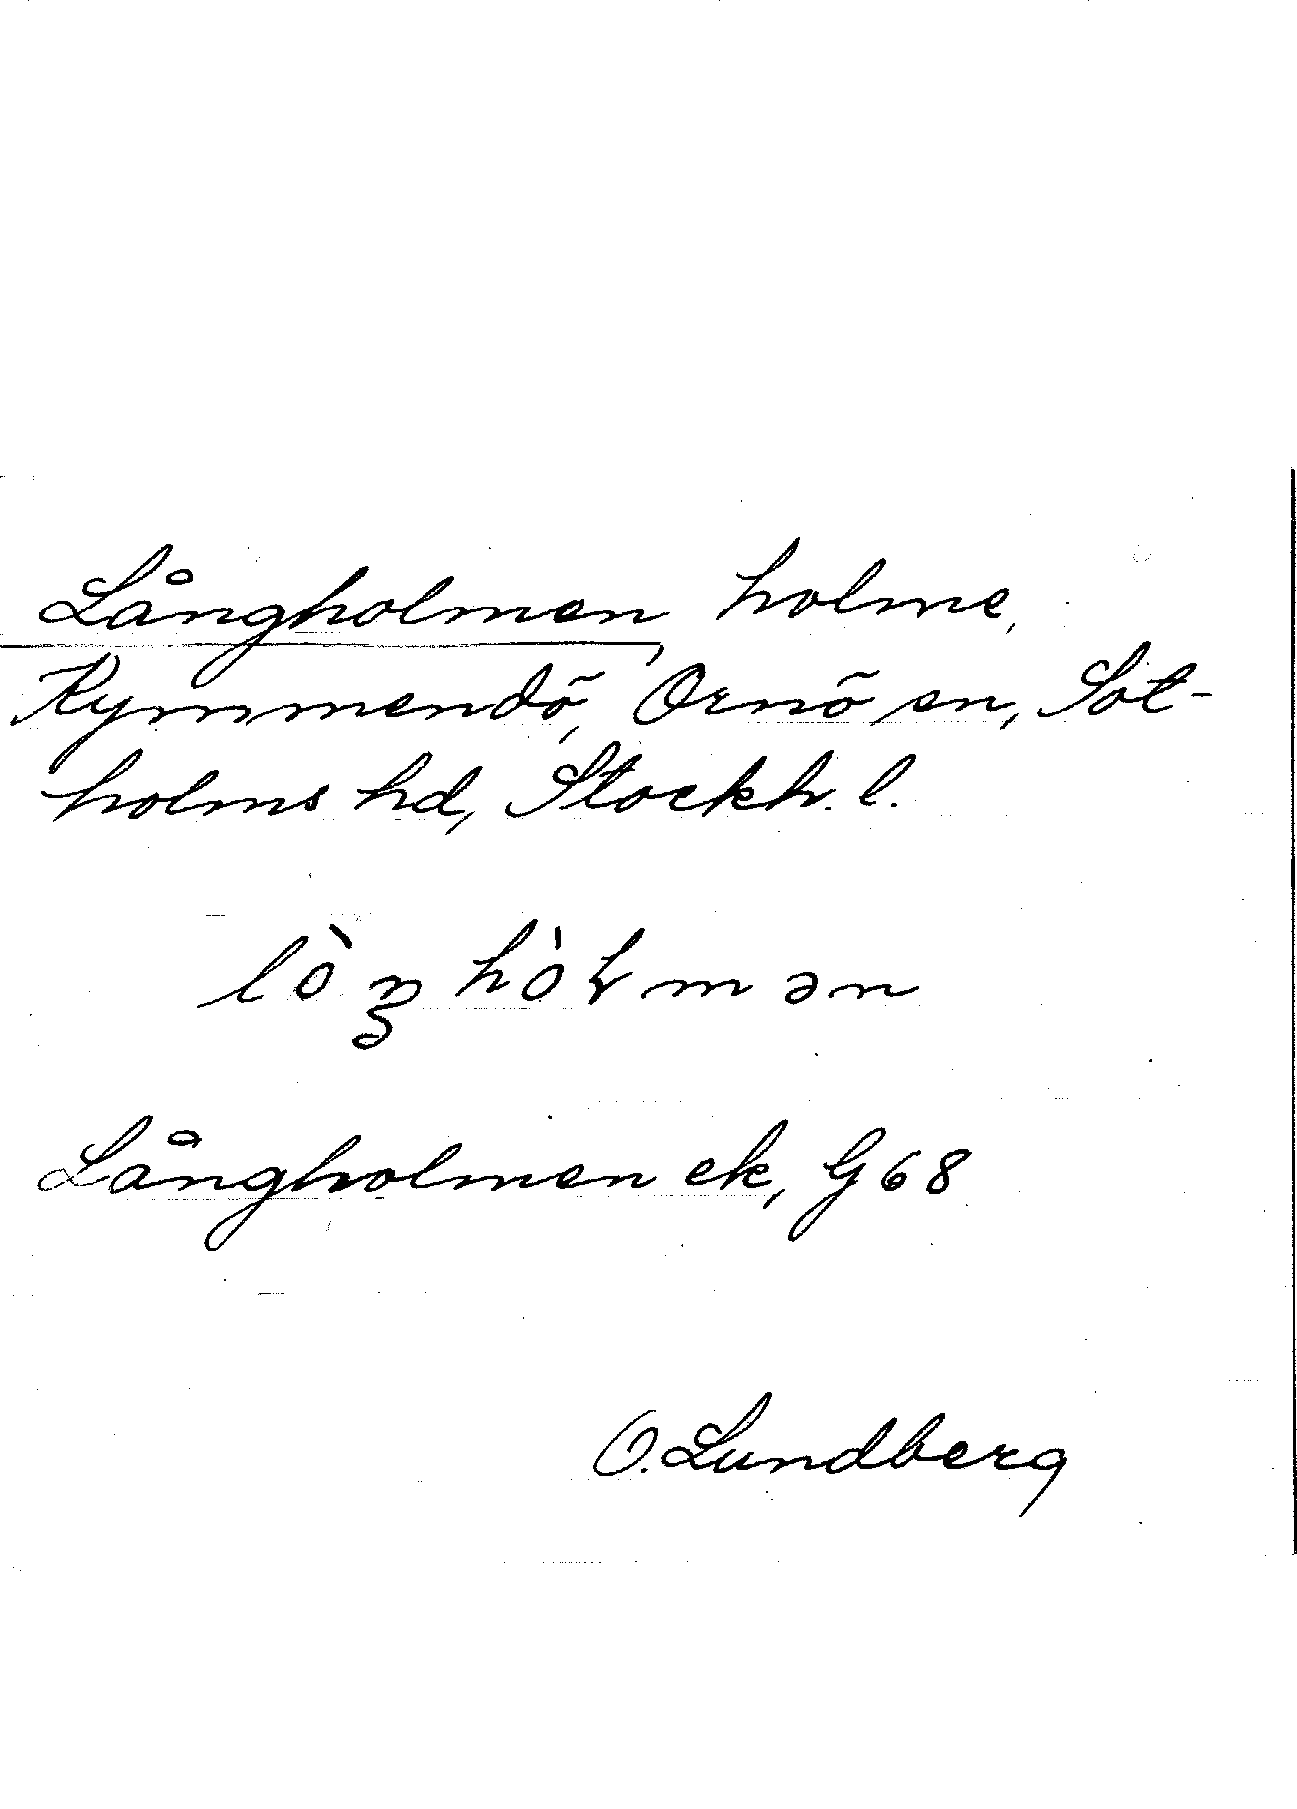 Långholmen, holme,
Kymmendö, Ornö sn, Sot-
holms hd, Stockh. l.
lòŋhòɫmən
Långholmen ek, G68
O. Lundberg